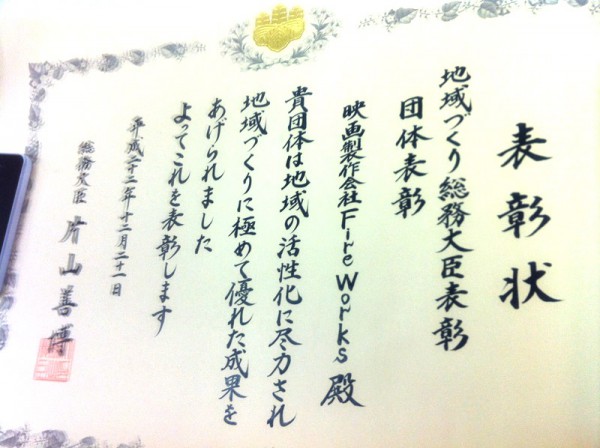 表彰状
地域づくり総務大臣表彰
団体表彰
映画製作会社FireWorks 殿
貴団体は地域の活性化に尽力され
地域づくりに極めて優れた成果を
あげられました
よってこれを表彰します
平成二十二年十二月二十一日
総務大臣 片山善博